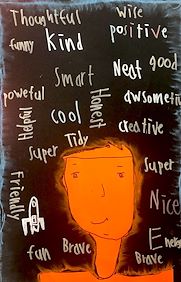 Thoughtful Wise
funny Kind positive
Smart Neat good
poweful Honest awsometim
Happy cool creative
Tidy
Super Super
Friendly Nice
fun Brave Brave